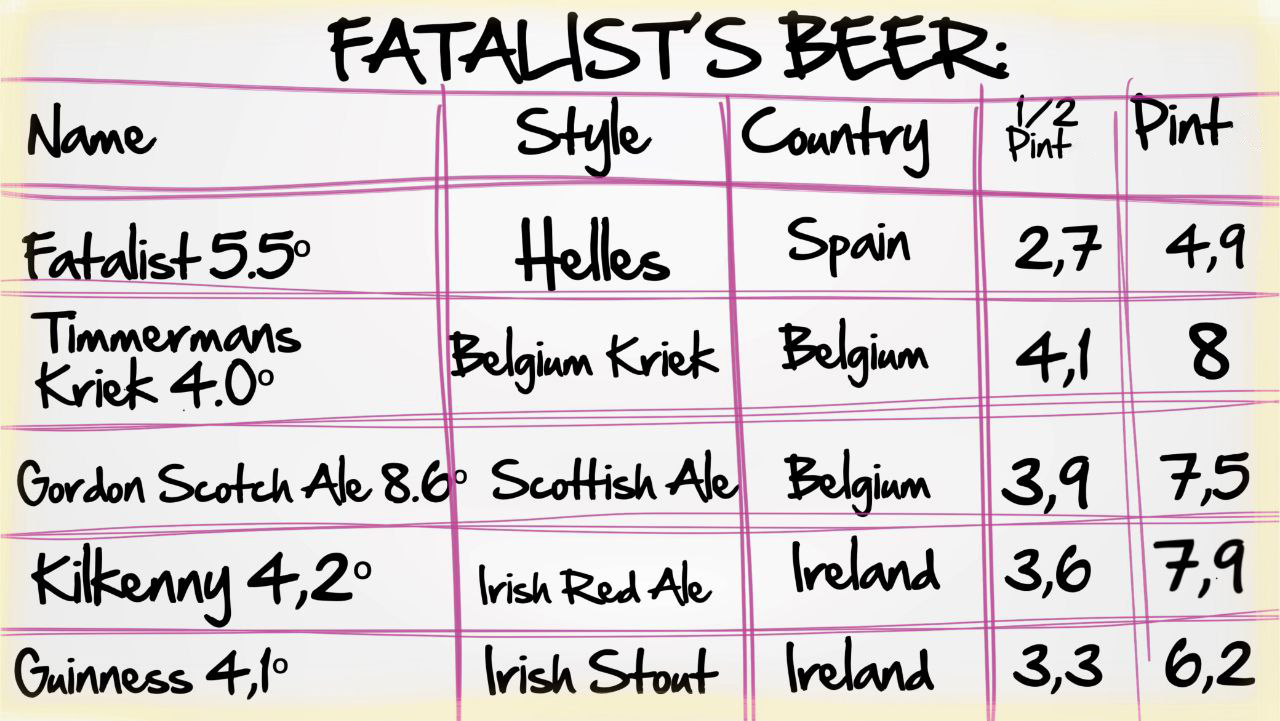 FATALIST'S BEER:
Name Style Country 1/2 Pint Pint
Fatalist 5.5º Helles Spain 2,7 4,9
Timmermans
Kriek 4.0º Belgium Kriek Belgium 4,1 8
Gordon Scotch Ale 8.6º Scottish Ale Belgium 3,9 7,5
Kilkenny 4,2º Irish Red Ale Ireland 3,6 7,9
Guinness 4,1º Irish Stout Ireland 3,3 6,2